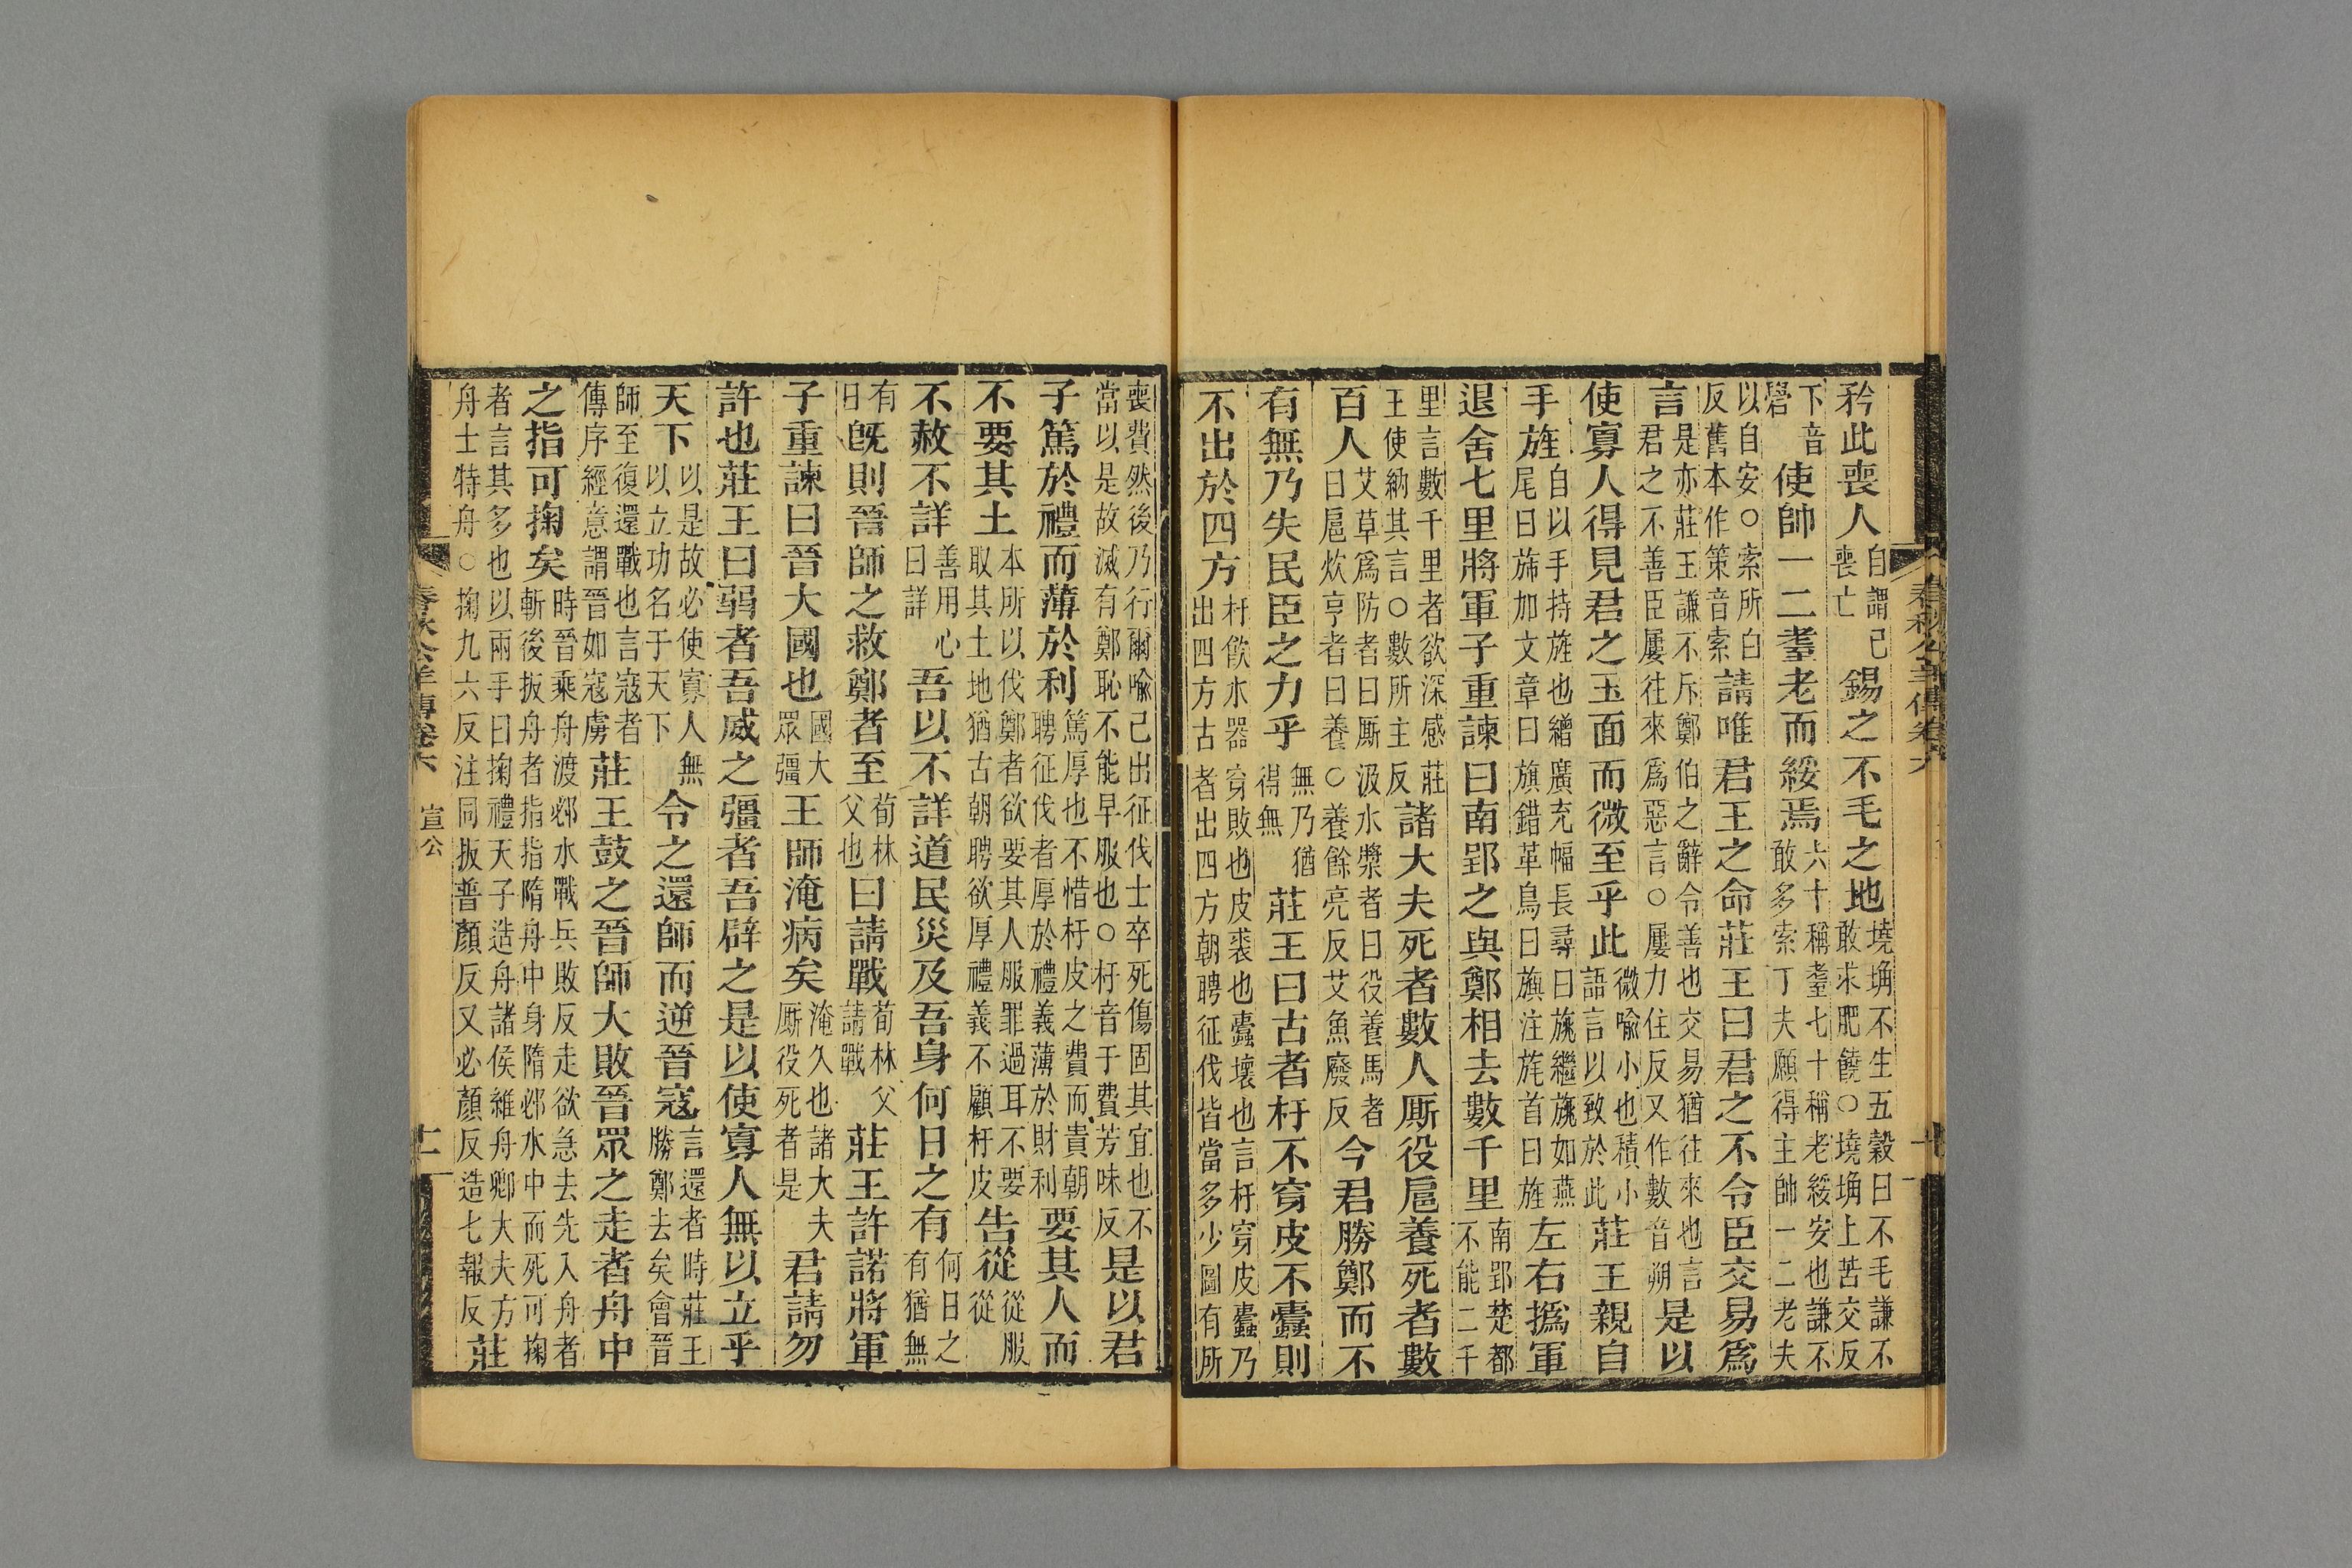 矜此喪人自謂己喪亡錫之不毛之地墝埆不生五穀曰不毛謙不敢求肥饒○墝埆上苦交反
下音礐使帥一二耋老而綏焉六十稱耋七十稱老綏安也謙不敢多索丁夫願得主帥一二老夫
以自安○索所白反舊本作策音索請唯君王之命莊王曰君之不令臣交易爲
言是亦莊王謙不斥鄭伯之辭令善也交易猶往來也言君之不善臣屢往來爲惡言○屢力住反又作數音朔是以
使寡人得見君之玉面而微至乎此微喻小也積小語言以致於此莊王親自
手旌自以手持旌也繒廣充幅長尋曰旐繼旐如燕尾曰旆加文章曰旗錯革鳥曰旟注旄首曰旌左右撝軍
退舍七里將軍子重諫曰南郢之與鄭相去數千里南郢楚都不能二千
里言數千里者欲深感莊王使納其言○數所主反諸大夫死者數人厮役扈養死者數
百人艾草爲防者曰厮汲水漿者曰役養馬者曰扈炊亨者曰養○養餘亮反艾魚廢反今君勝鄭而不
有無乃失民臣之力乎無乃猶得無莊王曰古者杅不穿皮不蠹則
不出於四方杅飲水器穿敗也皮裘也蠹壞也言杅穿皮蠹乃出四方古者出四方朝聘征伐皆當多少圖有所
春秋公羊傳卷六
十
喪費然後乃行爾喻己出征伐士卒死傷固其宜也不當以是故滅有鄭恥不能早服也○杅音于費芳味反是以君
子篤於禮而薄於利篤厚也不惜杅皮之費而貴朝聘征伐者厚於禮義薄於財利要其人而
不要其土本所以伐鄭者欲要其人服罪過耳不要取其土地猶古朝聘欲厚禮義不顧杅皮告從從服從
不赦不詳善用心曰詳吾以不詳道民災及吾身何日之有何日之有猶無
有日既則晉師之救鄭者至荀林父也曰請戰荀林父請戰莊王許諾將軍
子重諫曰晉大國也國大眾彊王師淹病矣淹久也諸大夫厮役死者是君請勿
許也莊王曰弱者吾威之彊者吾辟之是以使寡人無以立乎
天下以是故必使寡人無以立功名于天下令之還師而逆晉寇言還者時莊王勝鄭去矣會晉
師至復還戰也言寇者傳序經意謂晉如寇虜莊王鼓之晉師大敗晉眾之走者舟中
之指可掬矣時晉乘舟渡邲水戰兵敗反走欲急去先入舟者斬後扳舟者指指隋舟中身隋邲水中而死可掬
者言其多也以兩手曰掬禮天子造舟諸侯維舟卿大夫方舟士特舟○掬九六反注同扳普顏反又必顏反造七報反莊
春秋公羊傳卷六
宣公
十一